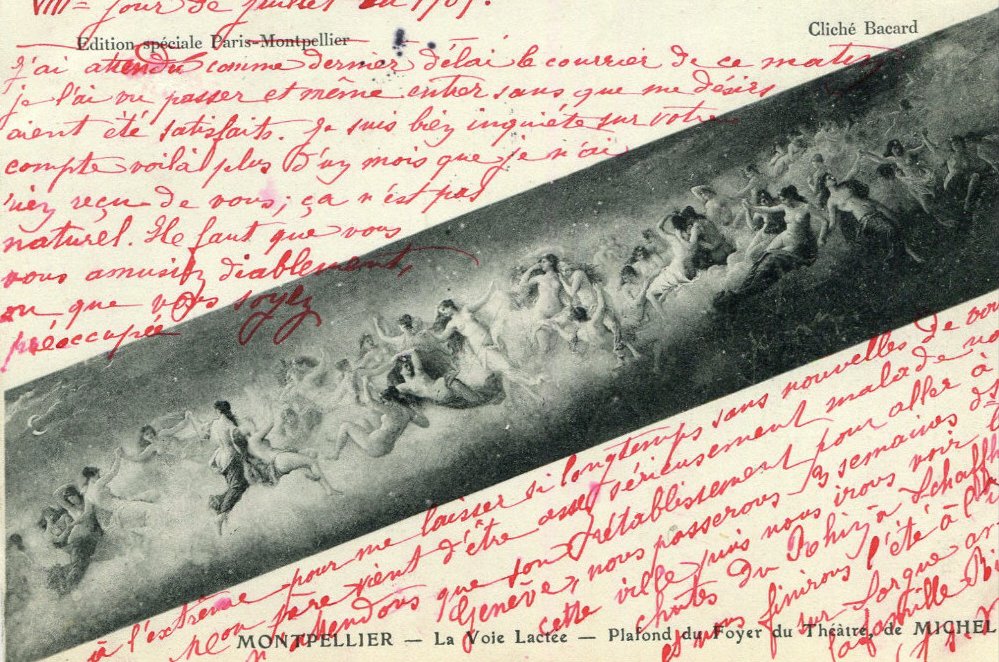 VIIIᵉ jour de juillet
Edition spéciale Paris-Montpellier
Cliché Bacard
J'ai attendu comme dernier délai le courrier de ce matin
je l'ai vu passer et même entrer sans que me désirs
aient été satisfaits. Je suis bien inquiète sur votre
compte voilà plus d'un mois que je n'ai
rien reçu de vous; ça n'est pas
naturel. Il faut que vous
vous amusiez diablement,
ou que vous soyez
préoccupée
à l'extrême pour me laisser si longtemps sans nouvelles de vou
Mon père vient d'être assez sérieusement malade no
attendons que son rétablissement pour aller à
Genève, nous passerons 3 semaines ds
cette ville puis nous irons voir l
chutes du Rhin à Schaffh
et nous finirons l'été à l'
s/ Sorgue
la famille
MONTPELLIER — La Voie Lactée — Plafond du Foyer du Théâtre, de MICHEL